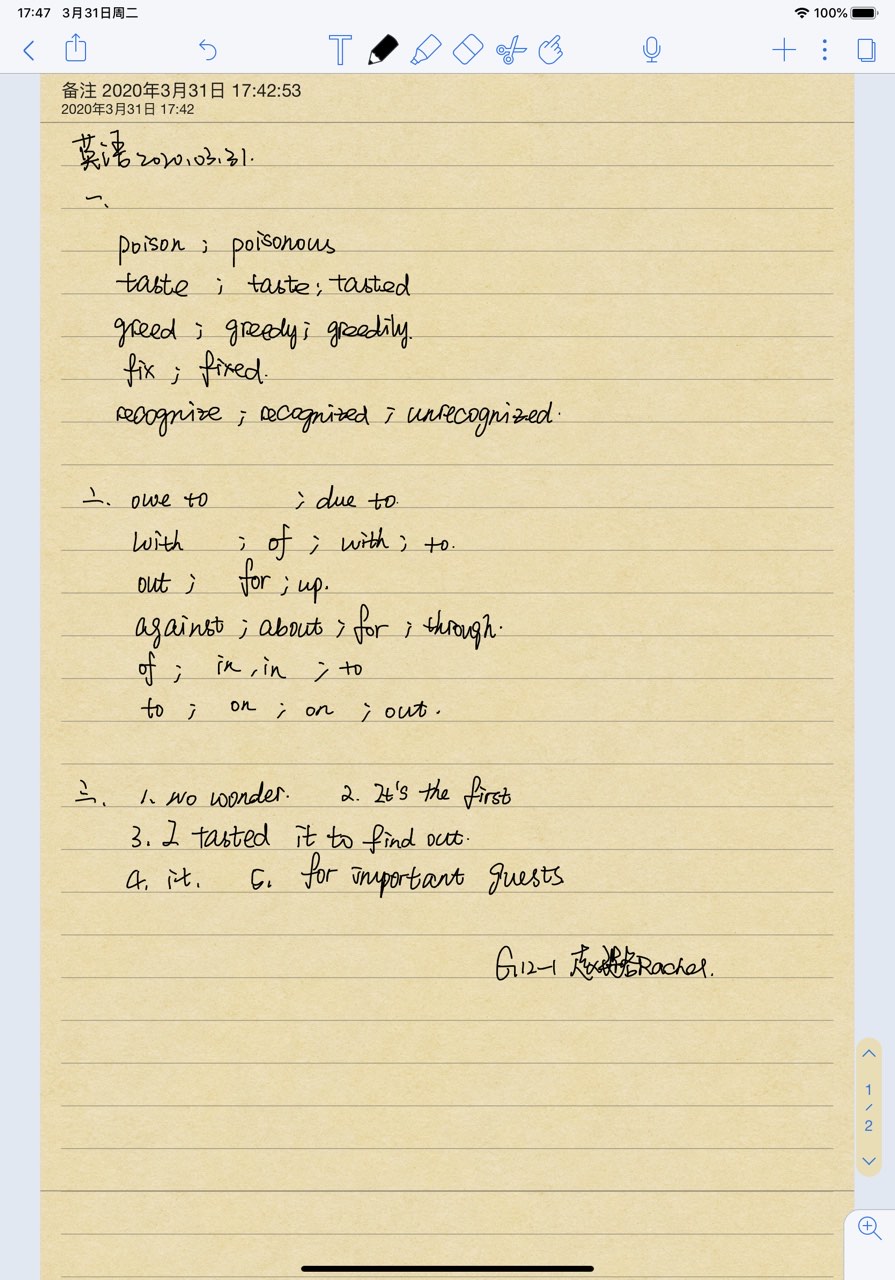 17:47 3月31日周二 100%
T
备注 2020年3月31日 17:42:53
2020年3月31日 17:42
英语 2020.03.31.
一、
poison ; poisonous
taste ; taste ; tasted
greed ; greedy ; greedily.
fix ; fixed.
recognize ; recognized ; unrecognized.
二. owe to ; due to.
with ; of ; with ; to.
out ; for ; up.
against ; about ; for ; through.
of ; in , in ; to
to ; on ; on ; out .
三. 1. No wonder. 2. It's the first
3. I tasted it to find out.
4. it. 5. for important guests
G12-1 Rachel.
1
/
2